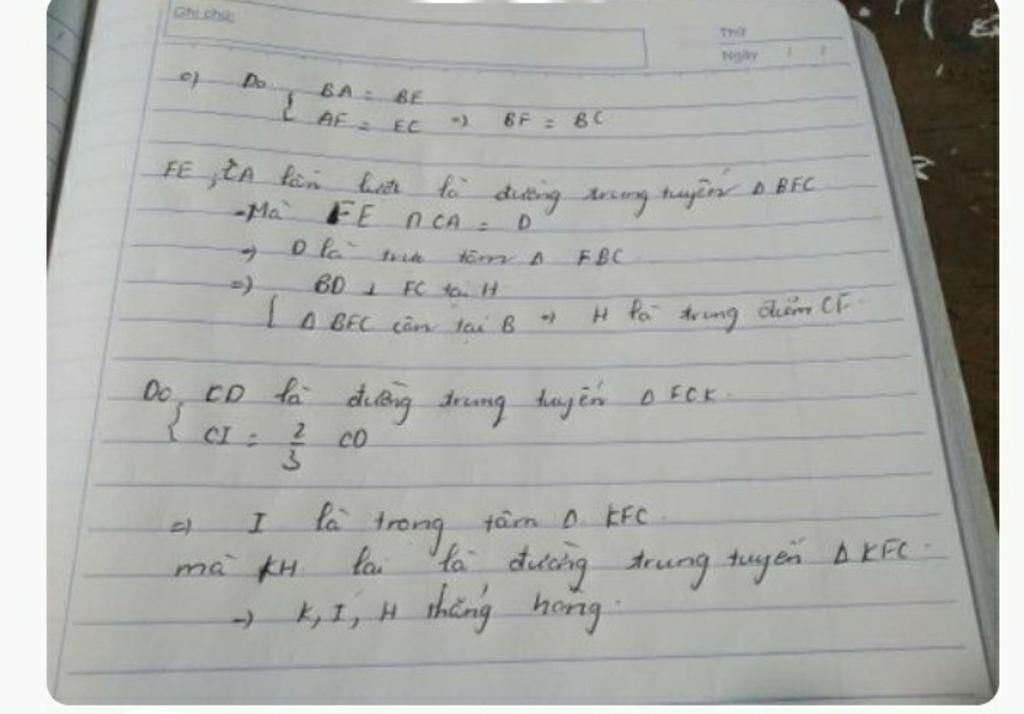 Ghi chú:
Thứ
Ngày / /
c) Do { BA = BE
AF = EC => BF = BC
FE, CA lần lượt là đường trung tuyến Δ BFC
-Mà FE ∩ CA = D
=> D là trực tâm Δ FBC
=> { BD ⊥ FC tại H
Δ BFC cân tại B => H là trung điểm CF.
Do { CD là đường trung tuyến Δ FCK.
CI = 2/3 CD
=> I là trong tâm Δ KFC.
mà KH lại là đường trung tuyến Δ KFC.
=> K, I, H thẳng hàng.